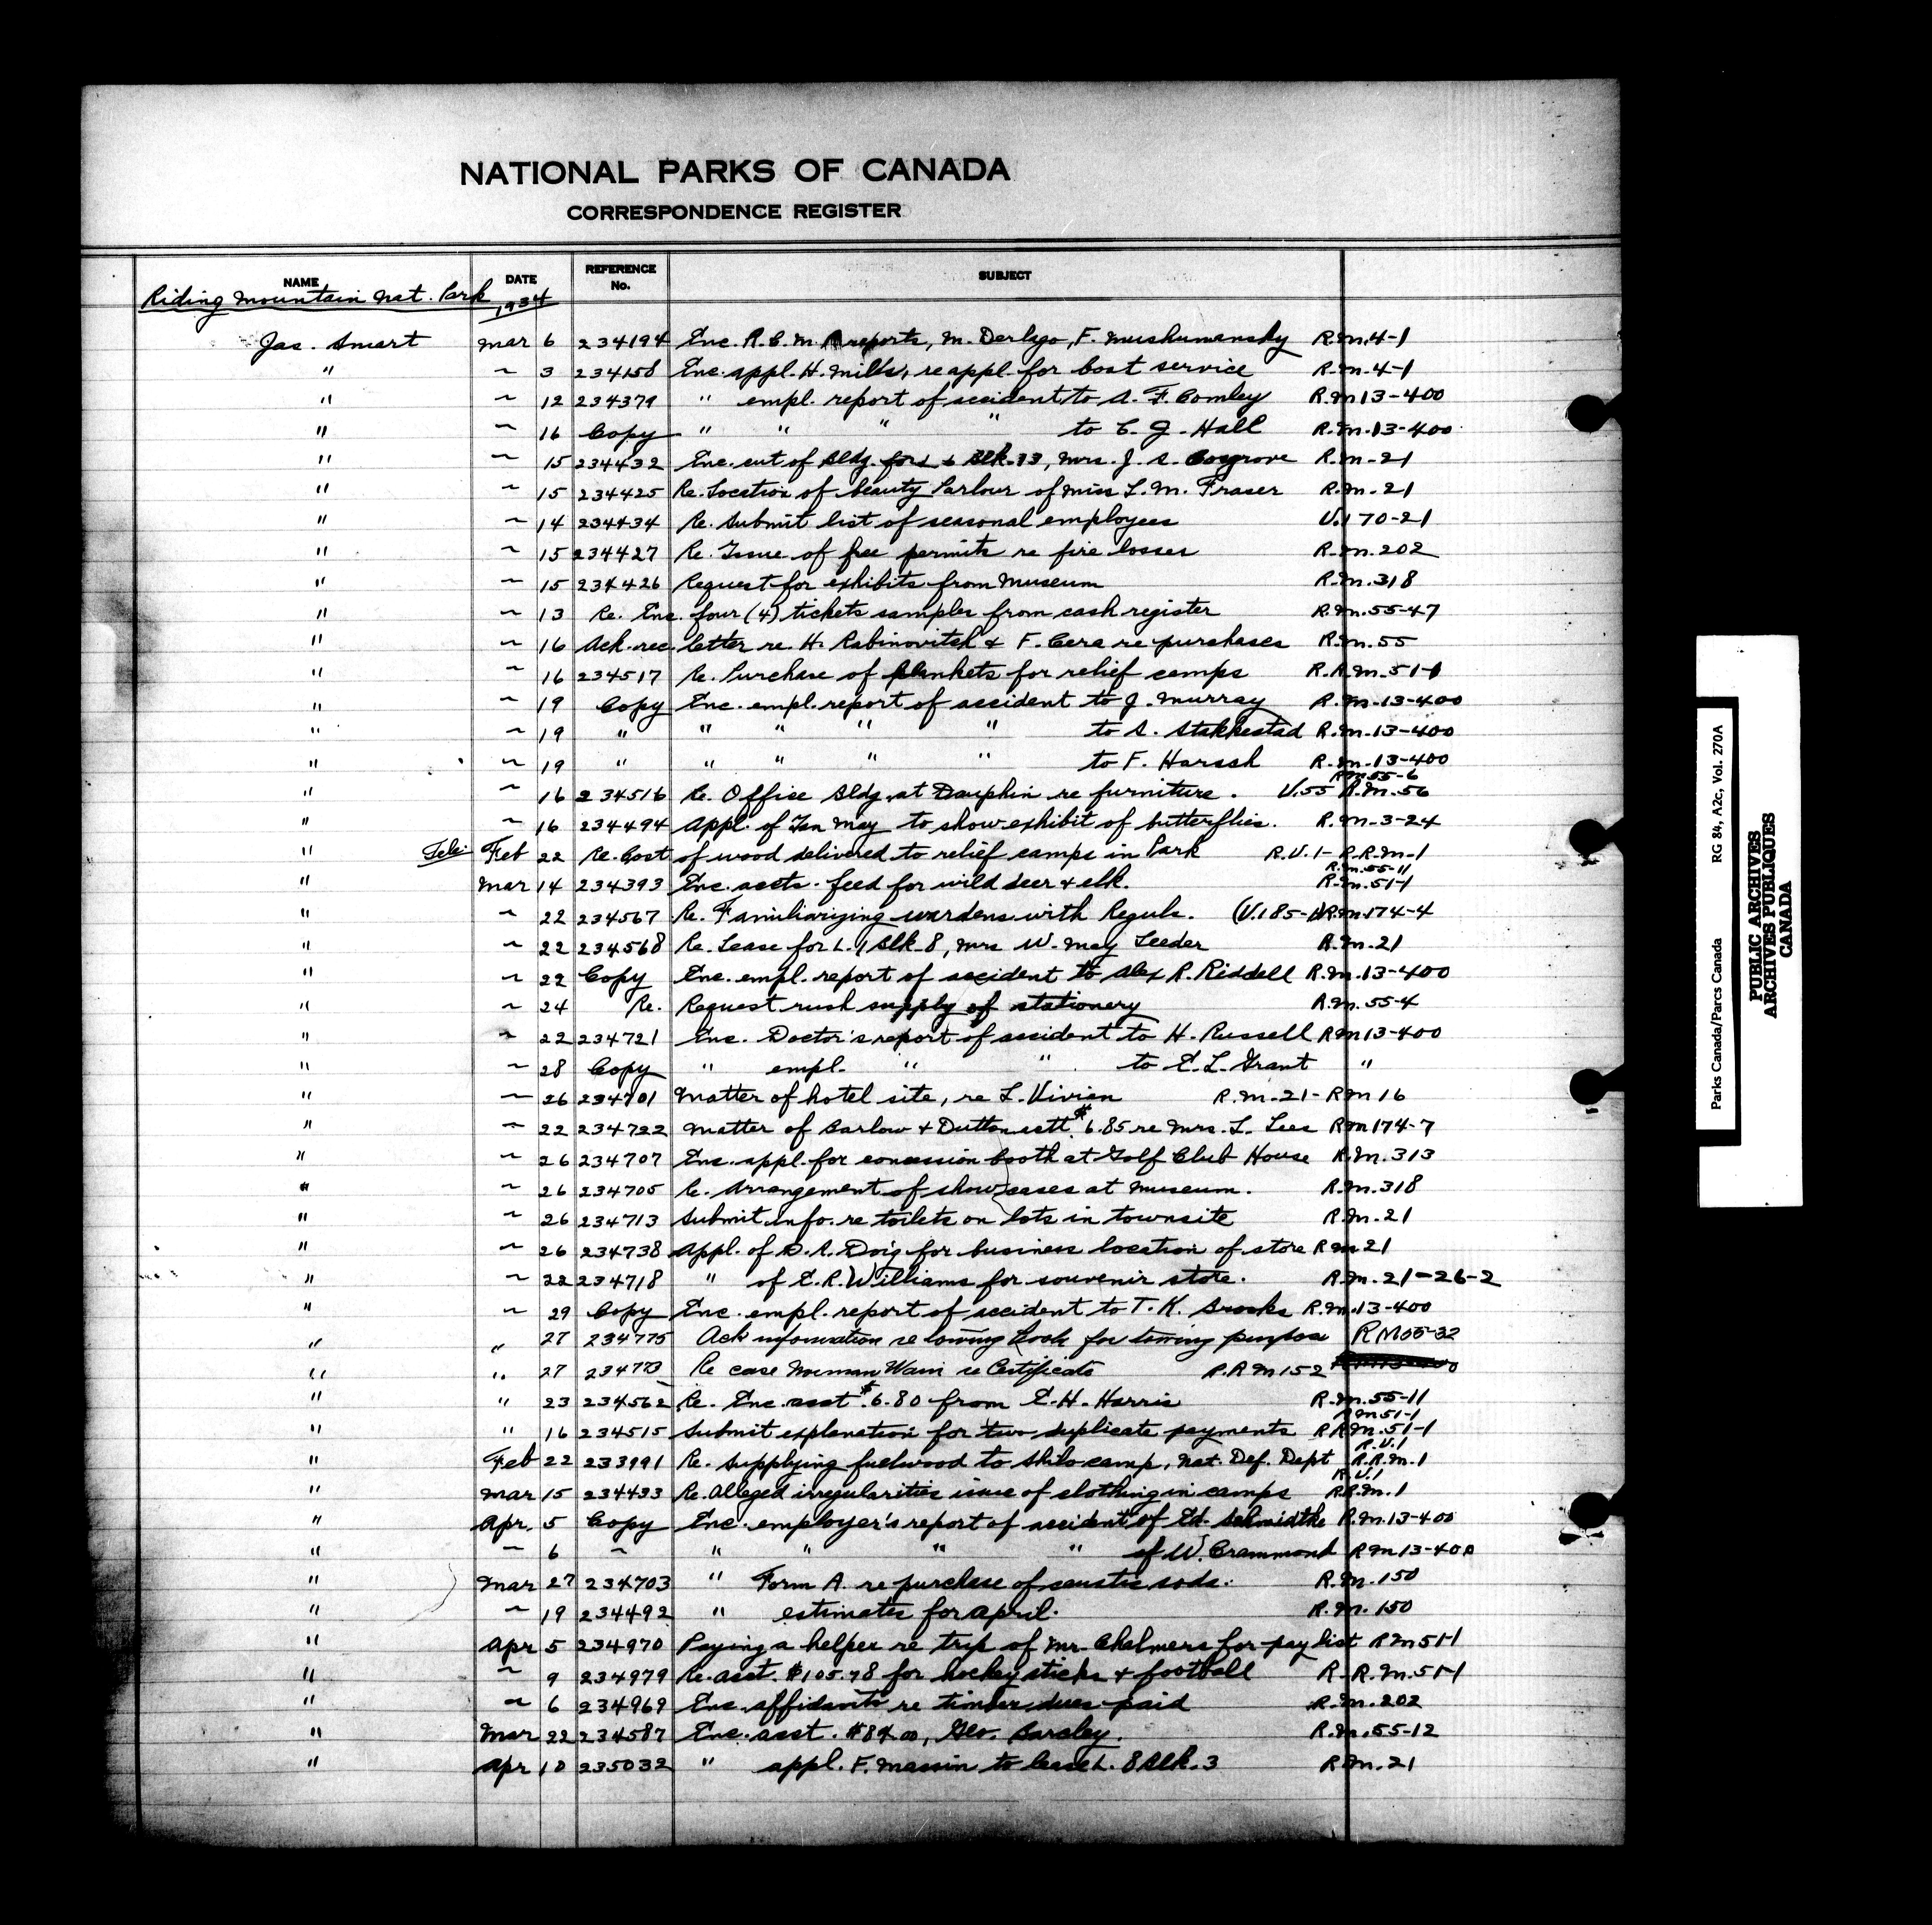 NATIONAL PARKS OF CANADA
CORRESPONDENCE REGISTER
NAME DATE REFERENCE No. SUBJECT
Riding Mountain Nat. Park 1934
Jas. Smart Mar 6 234194 Enc. R.C.M.P. reports, M. Derlago, F. Mushumansky R.M.4-1
" ~ 3 234158 Enc. appl. H. Mills, re appl. for boat service R.M.4-1
" ~ 12 234379 " empl. report of accident to A. F. Comley R.M.13-400
" ~ 16 Copy " " " " to C. J. Hall R.M.13-400
" ~ 15 234432 Enc. cut of Bldg. for L 6 Blk. 13, Mrs. J. S. Cosgrove R.M-21
" ~ 15 234425 Re. Location of beauty Parlour of Miss L. M. Fraser R.M.-21
" ~ 14 234434 Re. Submit list of seasonal employees U.170-21
" ~ 15 234427 Re. Issue of free permits re fire losses R.M.202
" ~ 15 234426 Request for exhibits from Museum R.M.318
" ~ 13 Re. Enc. four (4) tickets samples from cash register R.M.55-47
" ~ 16 Ack. rec. letter re. H. Rabinovitch & F. Cera re purchases R.M.55
" ~ 16 234517 Re. Purchase of blankets for relief camps R.R.M.51-1
" ~ 19 Copy Enc. empl. report of accident to J. Murray R.M.-13-400
" ~ 19 " " " " " to S. Stakkestad R.M.-13-400
" ~ 19 " " " " " to F. Harssh R.M.-13-400
R.M.55-6
" ~ 16 234516 Re. Office Bldg. at Dauphin re furniture. U.55 R.M.56
" ~ 16 234494 Appl. of Ian May to show exhibit of butterflies. R.M-3-24
" Tele. Feb 22 Re. Cost of wood delivered to relief camps in Park R.U.1-R.R.M-1
R.M.55-11
" Mar 14 234393 Enc. accts. feed for wild deer & elk. R.M.51-1
" ~ 22 234567 Re. Familiarizing wardens with Reguls. (U.185-1) R.M.174-4
" ~ 22 234568 Re. Lease for L. 1 Blk. 8, Mrs W. May Leeder R.M.21
" ~ 22 Copy Enc. empl. report of accident to Alex R. Riddell R.M.13-400
" ~ 24 Re. Request rush supply of stationery R.M.55-4
" ~ 22 234721 Enc. Doctor's report of accident to H. Russell R.M13-400
" ~ 28 Copy " empl. " " to E. L. Grant "
" ~ 26 234701 Matter of hotel site, re L. Vivian R.M.-21-RM16
" ~ 22 234722 Matter of Barlow & Dutton acct. $6.85 re Mrs. L. Lees R.M174-7
" ~ 26 234707 Enc. appl. for concession booth at Golf Club House R.M.313
" ~ 26 234705 Re. Arrangement of show cases at Museum. R.M.318
" ~ 26 234713 Submit info. re toilets on lots in townsite R.M.21
" ~ 26 234738 Appl. of D. A. Doig for business location of store R.M21
" ~ 22 234718 " of E. R. Williams for souvenir store. R.M.21-26-2
" ~ 29 Copy Enc. empl. report of accident to T. K. Brooks R.M.13-400
" " 27 234775 Ack information re towing hook for towing purpose RM55-32
" " 27 234773 Re case Norman Wain re Certificate R.R M 152
" " 23 234562 Re. Enc. acct $6.80 from E. H. Harris R.M.55-11
RM51-1
" " 16 234515 Submit explanation for two duplicate payments R R M.51-1
R.U.1
" Feb 22 233991 Re. Supplying fuelwood to Shilo camp, Nat. Def. Dept R.R.M.1
R.U.1
" Mar 15 234433 Re. Alleged irregularities issue of clothing in camps R.R.M.1
" Apr. 5 Copy Enc. employer's report of accident of Ed. Schmidtke R.M.13-400
" ~ 6 ~ " " " " of W. Crammond R.M13-400
" Mar 27 234703 " Form A. re purchase of caustic soda. R.M.150
" ~ 19 234492 " estimates for April. R.M.150
" Apr 5 234970 Paying a helper re trip of Mr. Chalmers for pay list R.M51-1
" ~ 9 234979 Re. acct. $105.78 for hockey sticks & football R.R.M.51-1
" ~ 6 234969 Enc. affidavits re timber dues paid R.M.202
" Mar 22 234587 Enc. acct. $84.00, Geo. Barcley. R.M.55-12
" Apr 10 235032 " appl. F. Massin to lease L. 8 Blk. 3 R.M.21
Parks Canada/Parcs Canada RG 84, A2c, Vol. 270A
PUBLIC ARCHIVES
ARCHIVES PUBLIQUES
CANADA